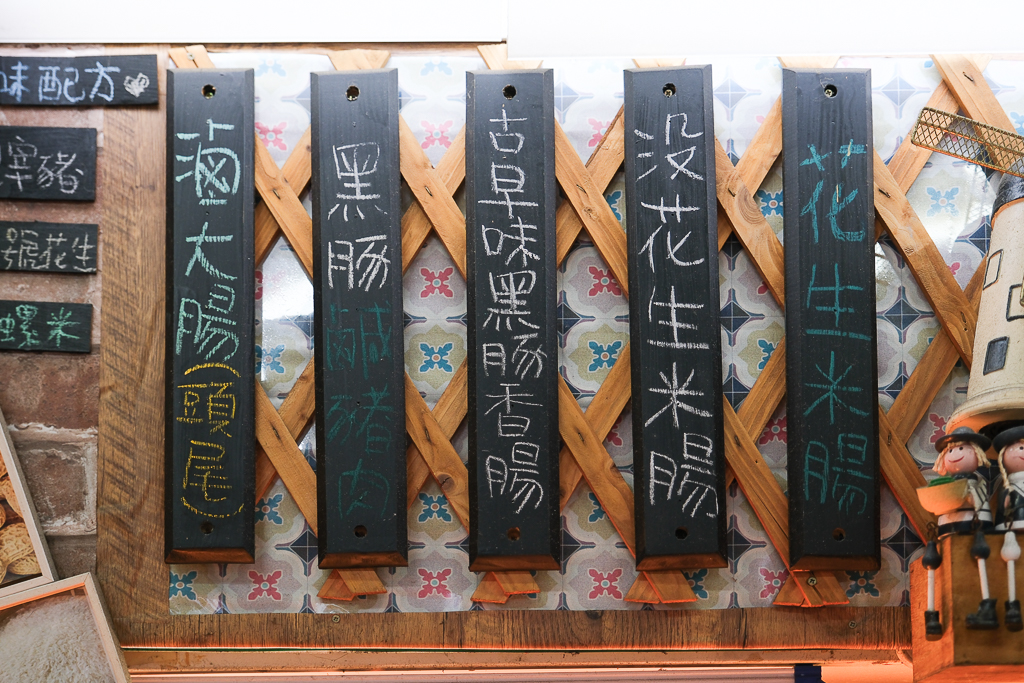 花生米腸
没花生米腸
古早味黑豚香腸
黑豚鹹豬肉
滷大腸(頭尾)
味配方
宰豬
號花生
螺米